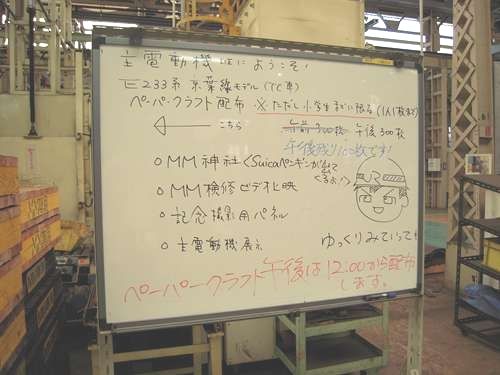 主電動機はにようこそ!
E233系 京葉線モデル(TC車)
ペーパークラフト配布 ※ただし小学生までに限る(1人1枚まで)
こちら
午前300枚 午後300枚
午後残り100枚です!
MM神社<Suicaペンギンが出てくるよ!>
MM検修ビデオ上映
記念撮影用パネル
主電動機展示
JR
ゆっくりみていってネ
ペーパークラフト午後は12:00から配布します。